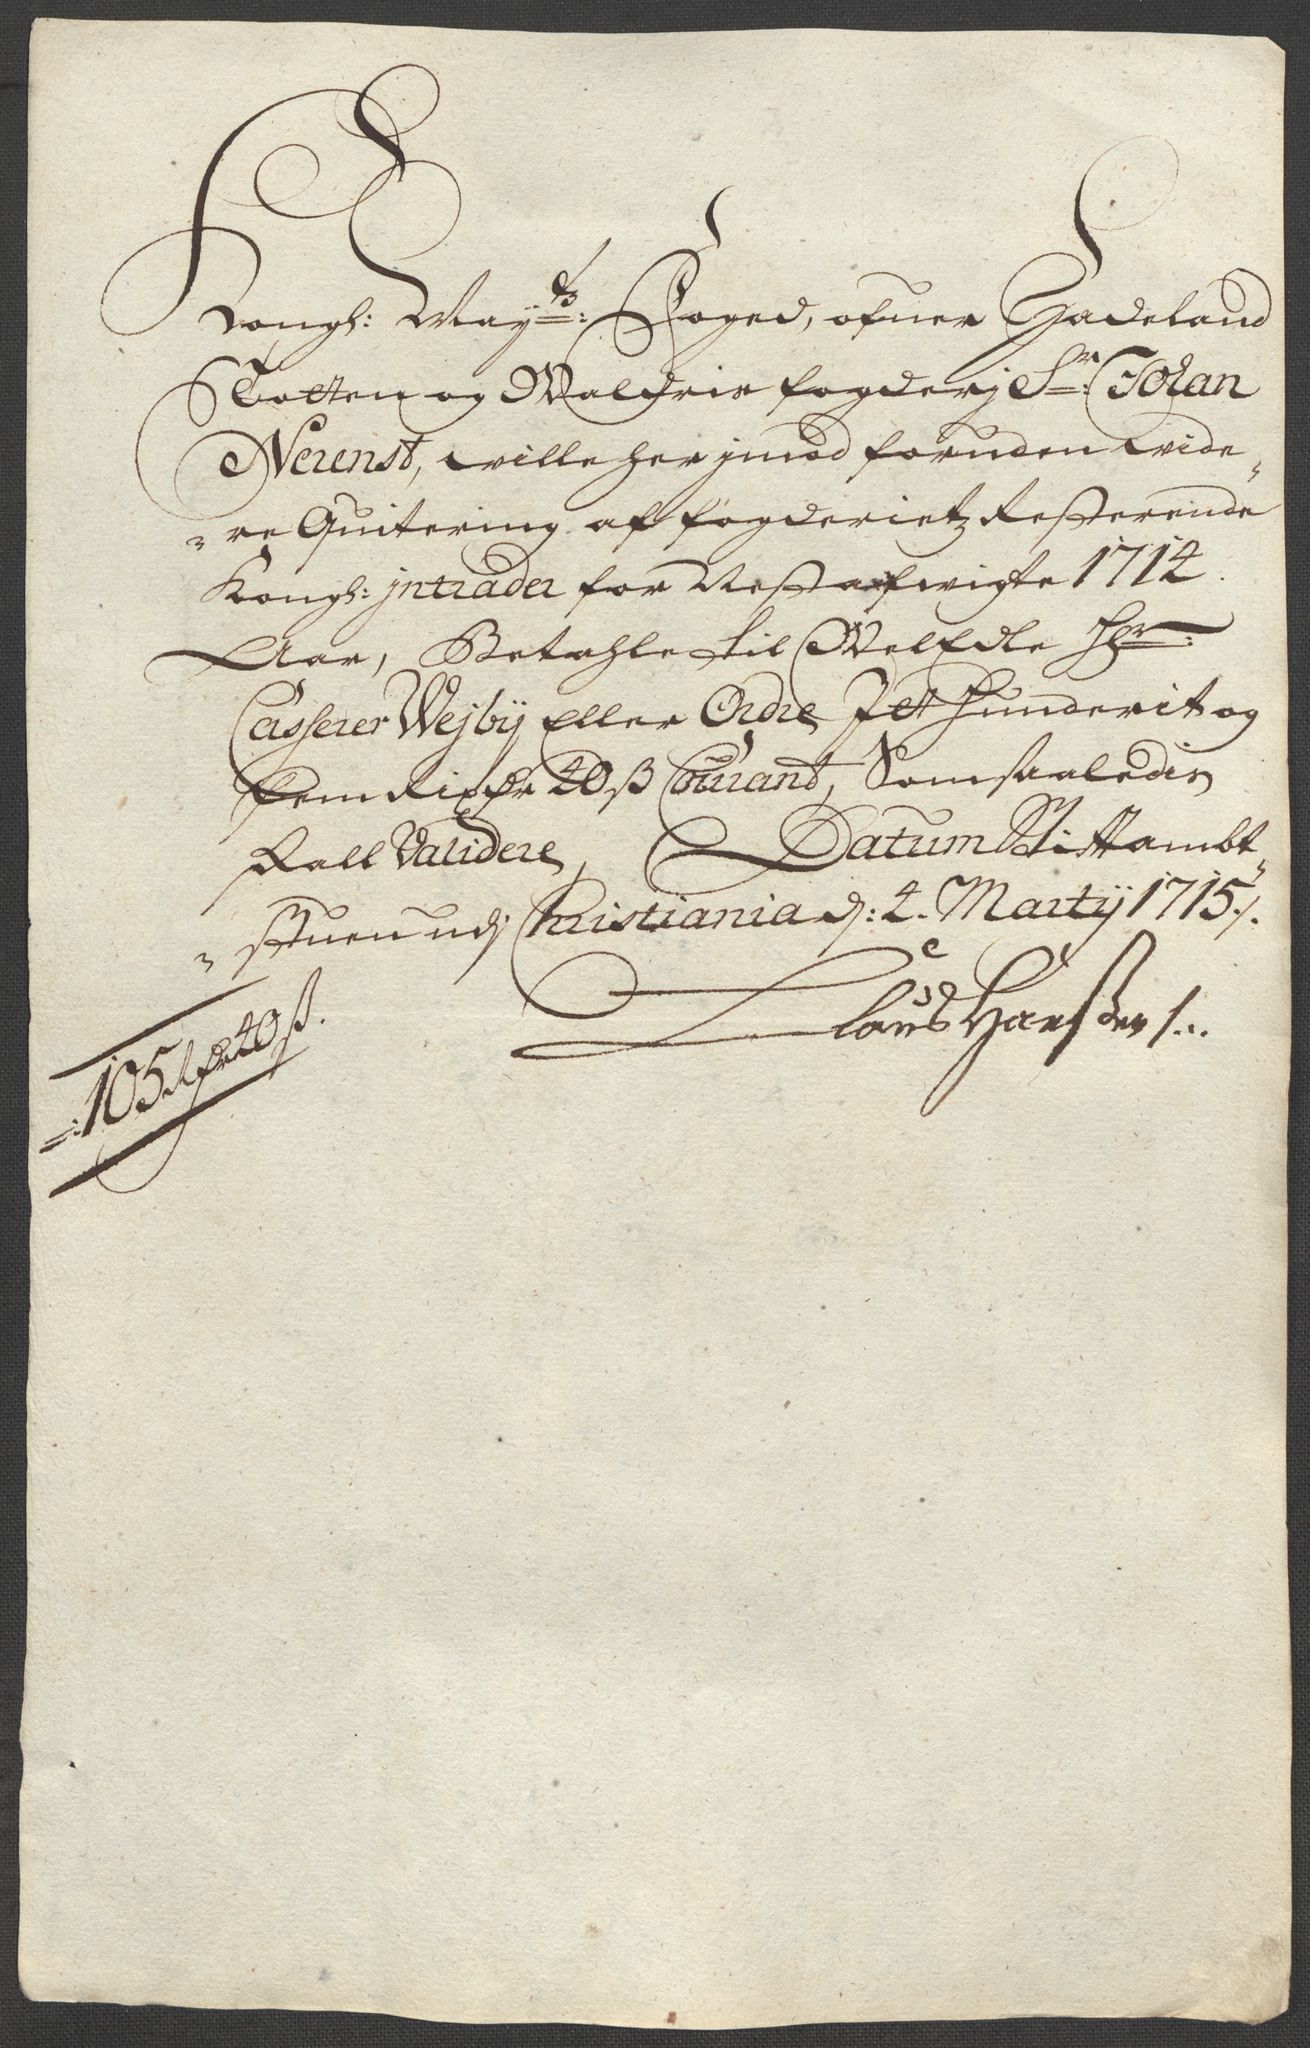 Kongl: May:ts: Foged, ofuer Hadeland
Totten og Waldris fogderj Sr: Johan
Neuenst, wille her jmod foruden wide„
„re Quitering af fogderietz Resterende
Kongl: jntrader for Nest afwigte 1714.
Aar, Betahle til WelEdle Hr:
Casserer Wejby Eller Ordre Jet Hunderit og
fem Rixdr 40 ß Courant, Som saaledis
skall Validere, Datum Stiftambt„
„stuen udj Christiania d: 4. Martij 1715 /.
Claus Hanssen /...
=:105 Rdr 40 ß.